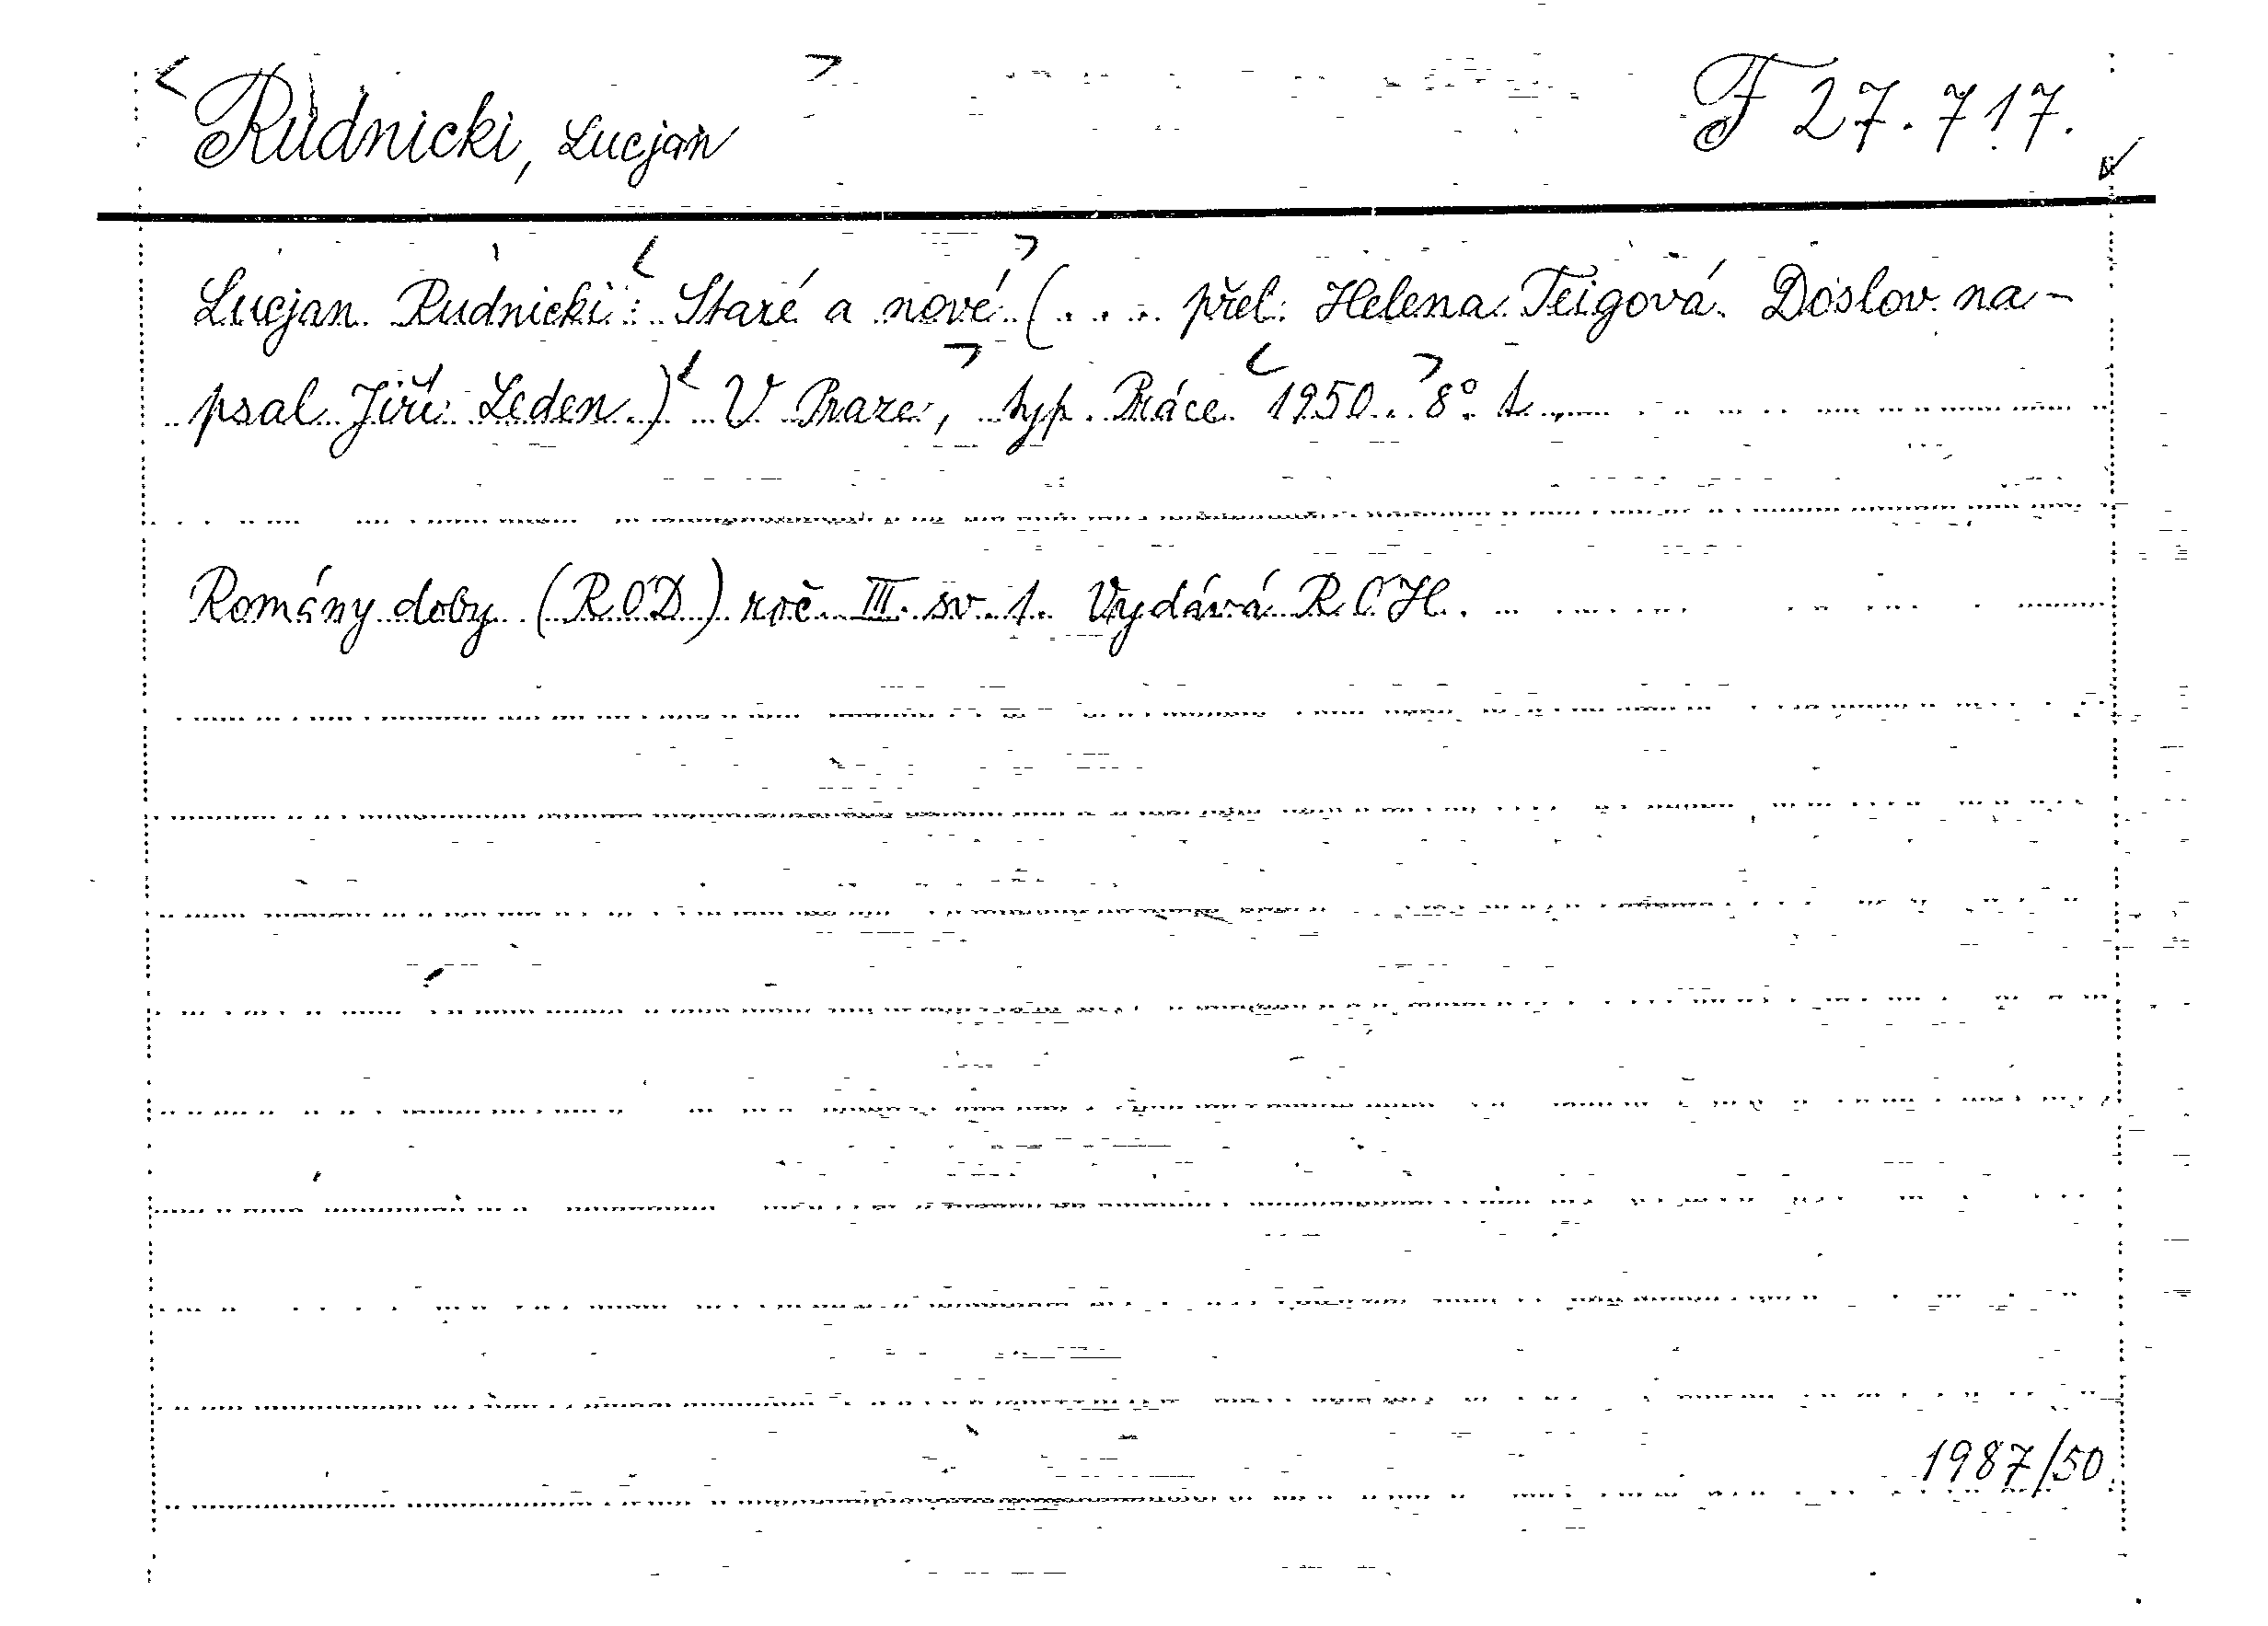 Rudnicki, Lucjan F 27.717.
Lucjan Rudnicki: Staré a nové (... přel. Helena Teigová. Doslov na-
psal Jiří Leden.) V Praze, typ. Práce 1950. 8°. 1.
Romány doby (ROD) roč. III. sv. 1. Vydává ROH.
1987/50